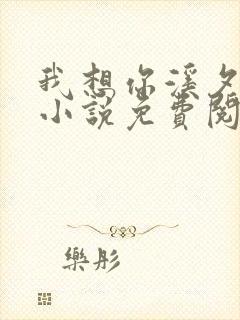 我想你溪夕
小说免費閱
樂彤